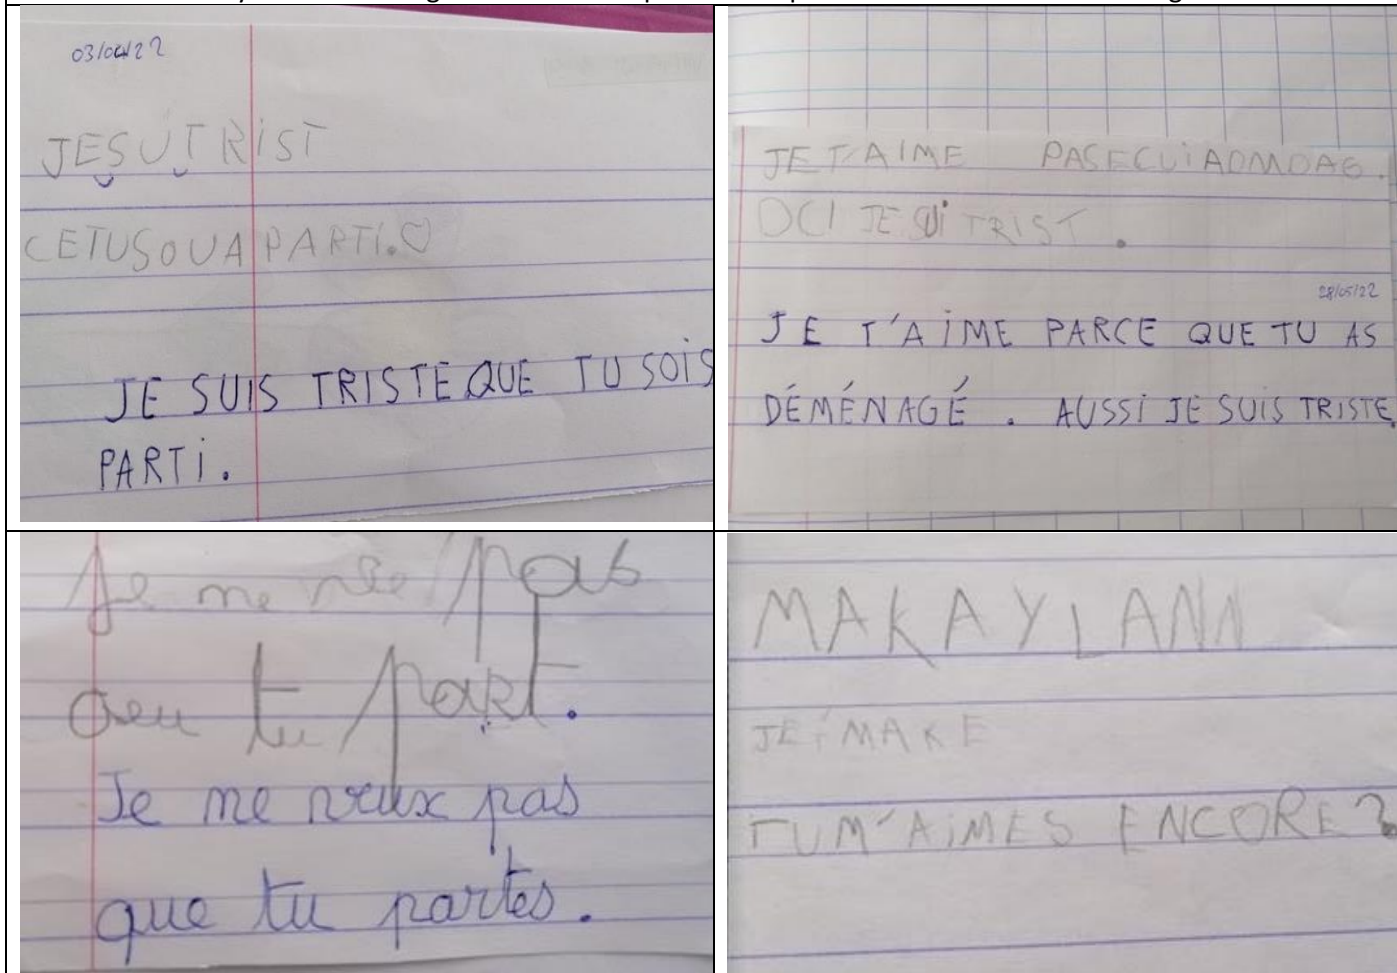 03/04/22
JESUTRIST
CETUSOUAPARTI.♡
JE SUIS TRISTE QUE TU SOIS
PARTI.
JE T'AIME PASECUIADMDAG.
OCI JE SUI TRIST.
28/05/22
JE T'AIME PARCE QUE TU AS
DÉMÉNAGÉ. AUSSI JE SUIS TRISTE.
Je ne pas
tu part.
Je ne veux pas
que tu partes.
MAKAYLANN
MAKE
TU M'AIMES ENCORE?